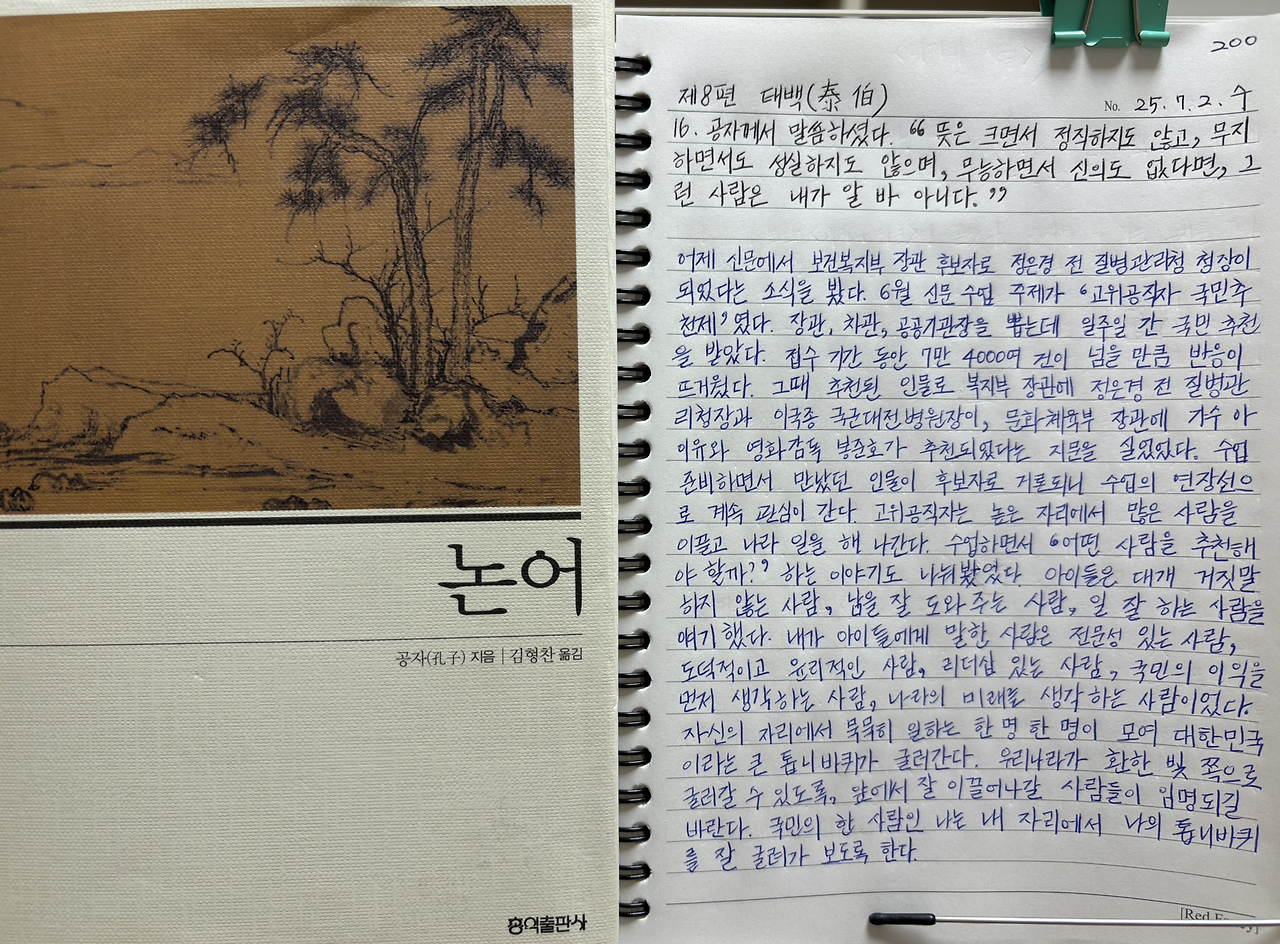 논어
공자(孔子) 지음 | 김형찬 옮김
홍익출판사
200
제8편 태백(泰伯)
No. 25. 7. 2. 수
16. 공자께서 말씀하셨다. “뜻은 크면서 정직하지도 않고, 무지
하면서도 성실하지도 않으며, 무능하면서 신의도 없다면, 그
런 사람은 내가 알 바 아니다.”
어제 신문에서 보건복지부 장관 후보자로 정은경 전 질병관리청 청장이
되었다는 소식을 봤다. 6월 신문 수업 주제가 ‘고위공직자 국민추
천제’였다. 장관, 차관, 공공기관장을 뽑는데 일주일 간 국민 추천
을 받았다. 접수 기간 동안 7만 4000여 건이 넘을 만큼 반응이
뜨거웠다. 그때 추천된 인물로 복지부 장관에 정은경 전 질병관
리청장과 이국종 국군대전병원장이, 문화체육부 장관에 가수 아
이유와 영화감독 봉준호가 추천되었다는 지문을 실었었다. 수업
준비하면서 만났던 인물이 후보자로 거론되니 수업의 연장선으
로 계속 관심이 간다. 고위공직자는 높은 자리에서 많은 사람을
이끌고 나라 일을 해 나간다. 수업하면서 ‘어떤 사람을 추천해
야 할까?’ 하는 이야기도 나눠봤었다. 아이들은 대개 거짓말
하지 않는 사람, 남을 잘 도와주는 사람, 일 잘 하는 사람을
얘기했다. 내가 아이들에게 말한 사람은 전문성 있는 사람,
도덕적이고 윤리적인 사람, 리더십 있는 사람, 국민의 이익을
먼저 생각하는 사람, 나라의 미래를 생각하는 사람이었다.
자신의 자리에서 묵묵히 일하는 한 명 한 명이 모여 대한민국
이라는 큰 톱니바퀴가 굴러간다. 우리나라가 환한 빛 쪽으로
굴러갈 수 있도록, 앞에서 잘 이끌어나갈 사람들이 임명되길
바란다. 국민의 한 사람인 나는 내 자리에서 나의 톱니바퀴
를 잘 굴려가 보도록 한다.
[Red